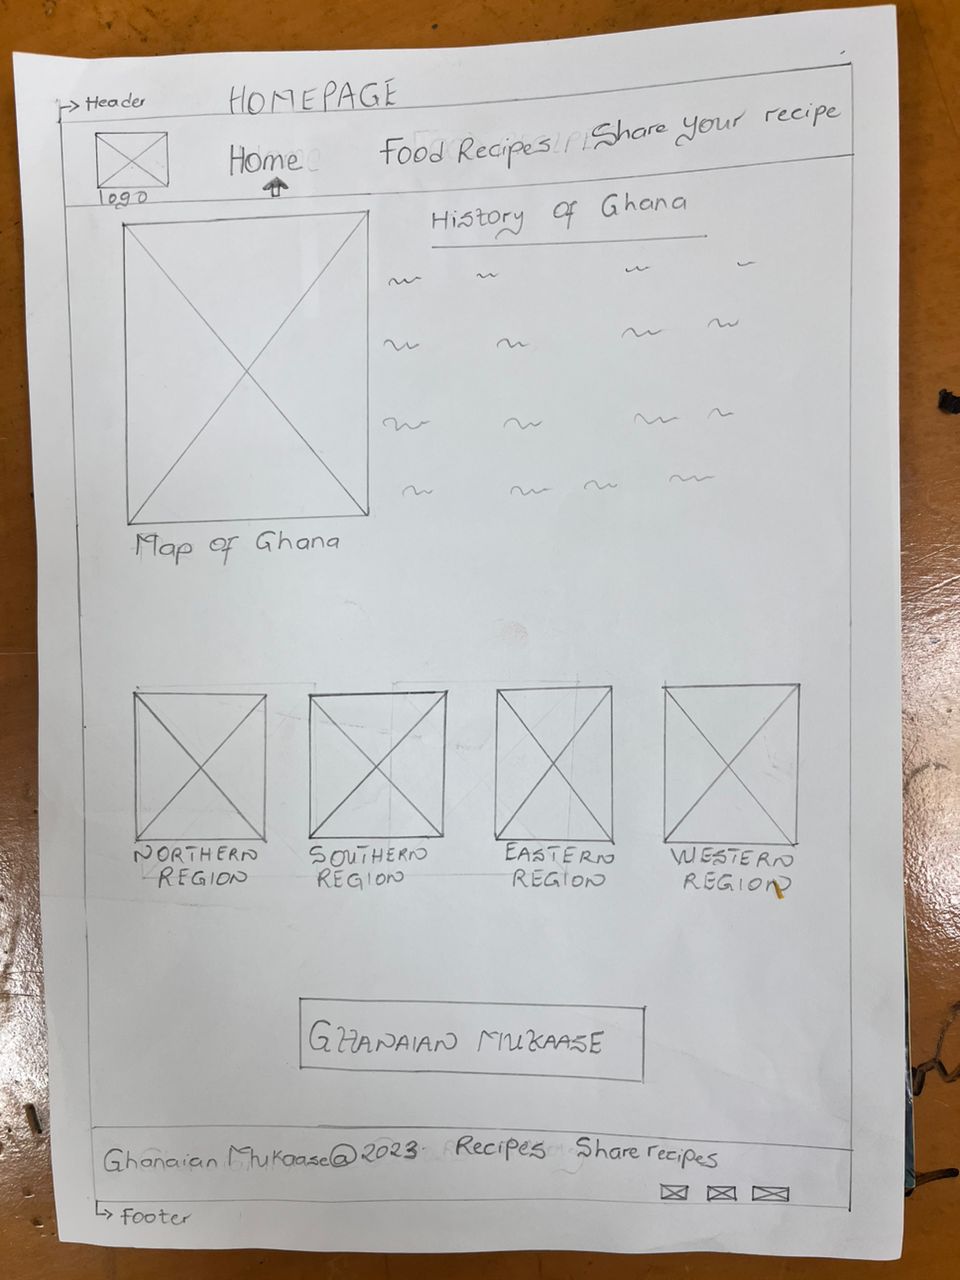 Header
HOMEPAGE
logo
Home
Food Recipes
Share your recipe
History of Ghana
Map of Ghana
NORTHERN
REGION
SOUTHERN
REGION
EASTERN
REGION
WESTERN
REGION
GHANAIAN MUKAASE
Ghanaian Mukaase@2023 Recipes Share recipes
Footer